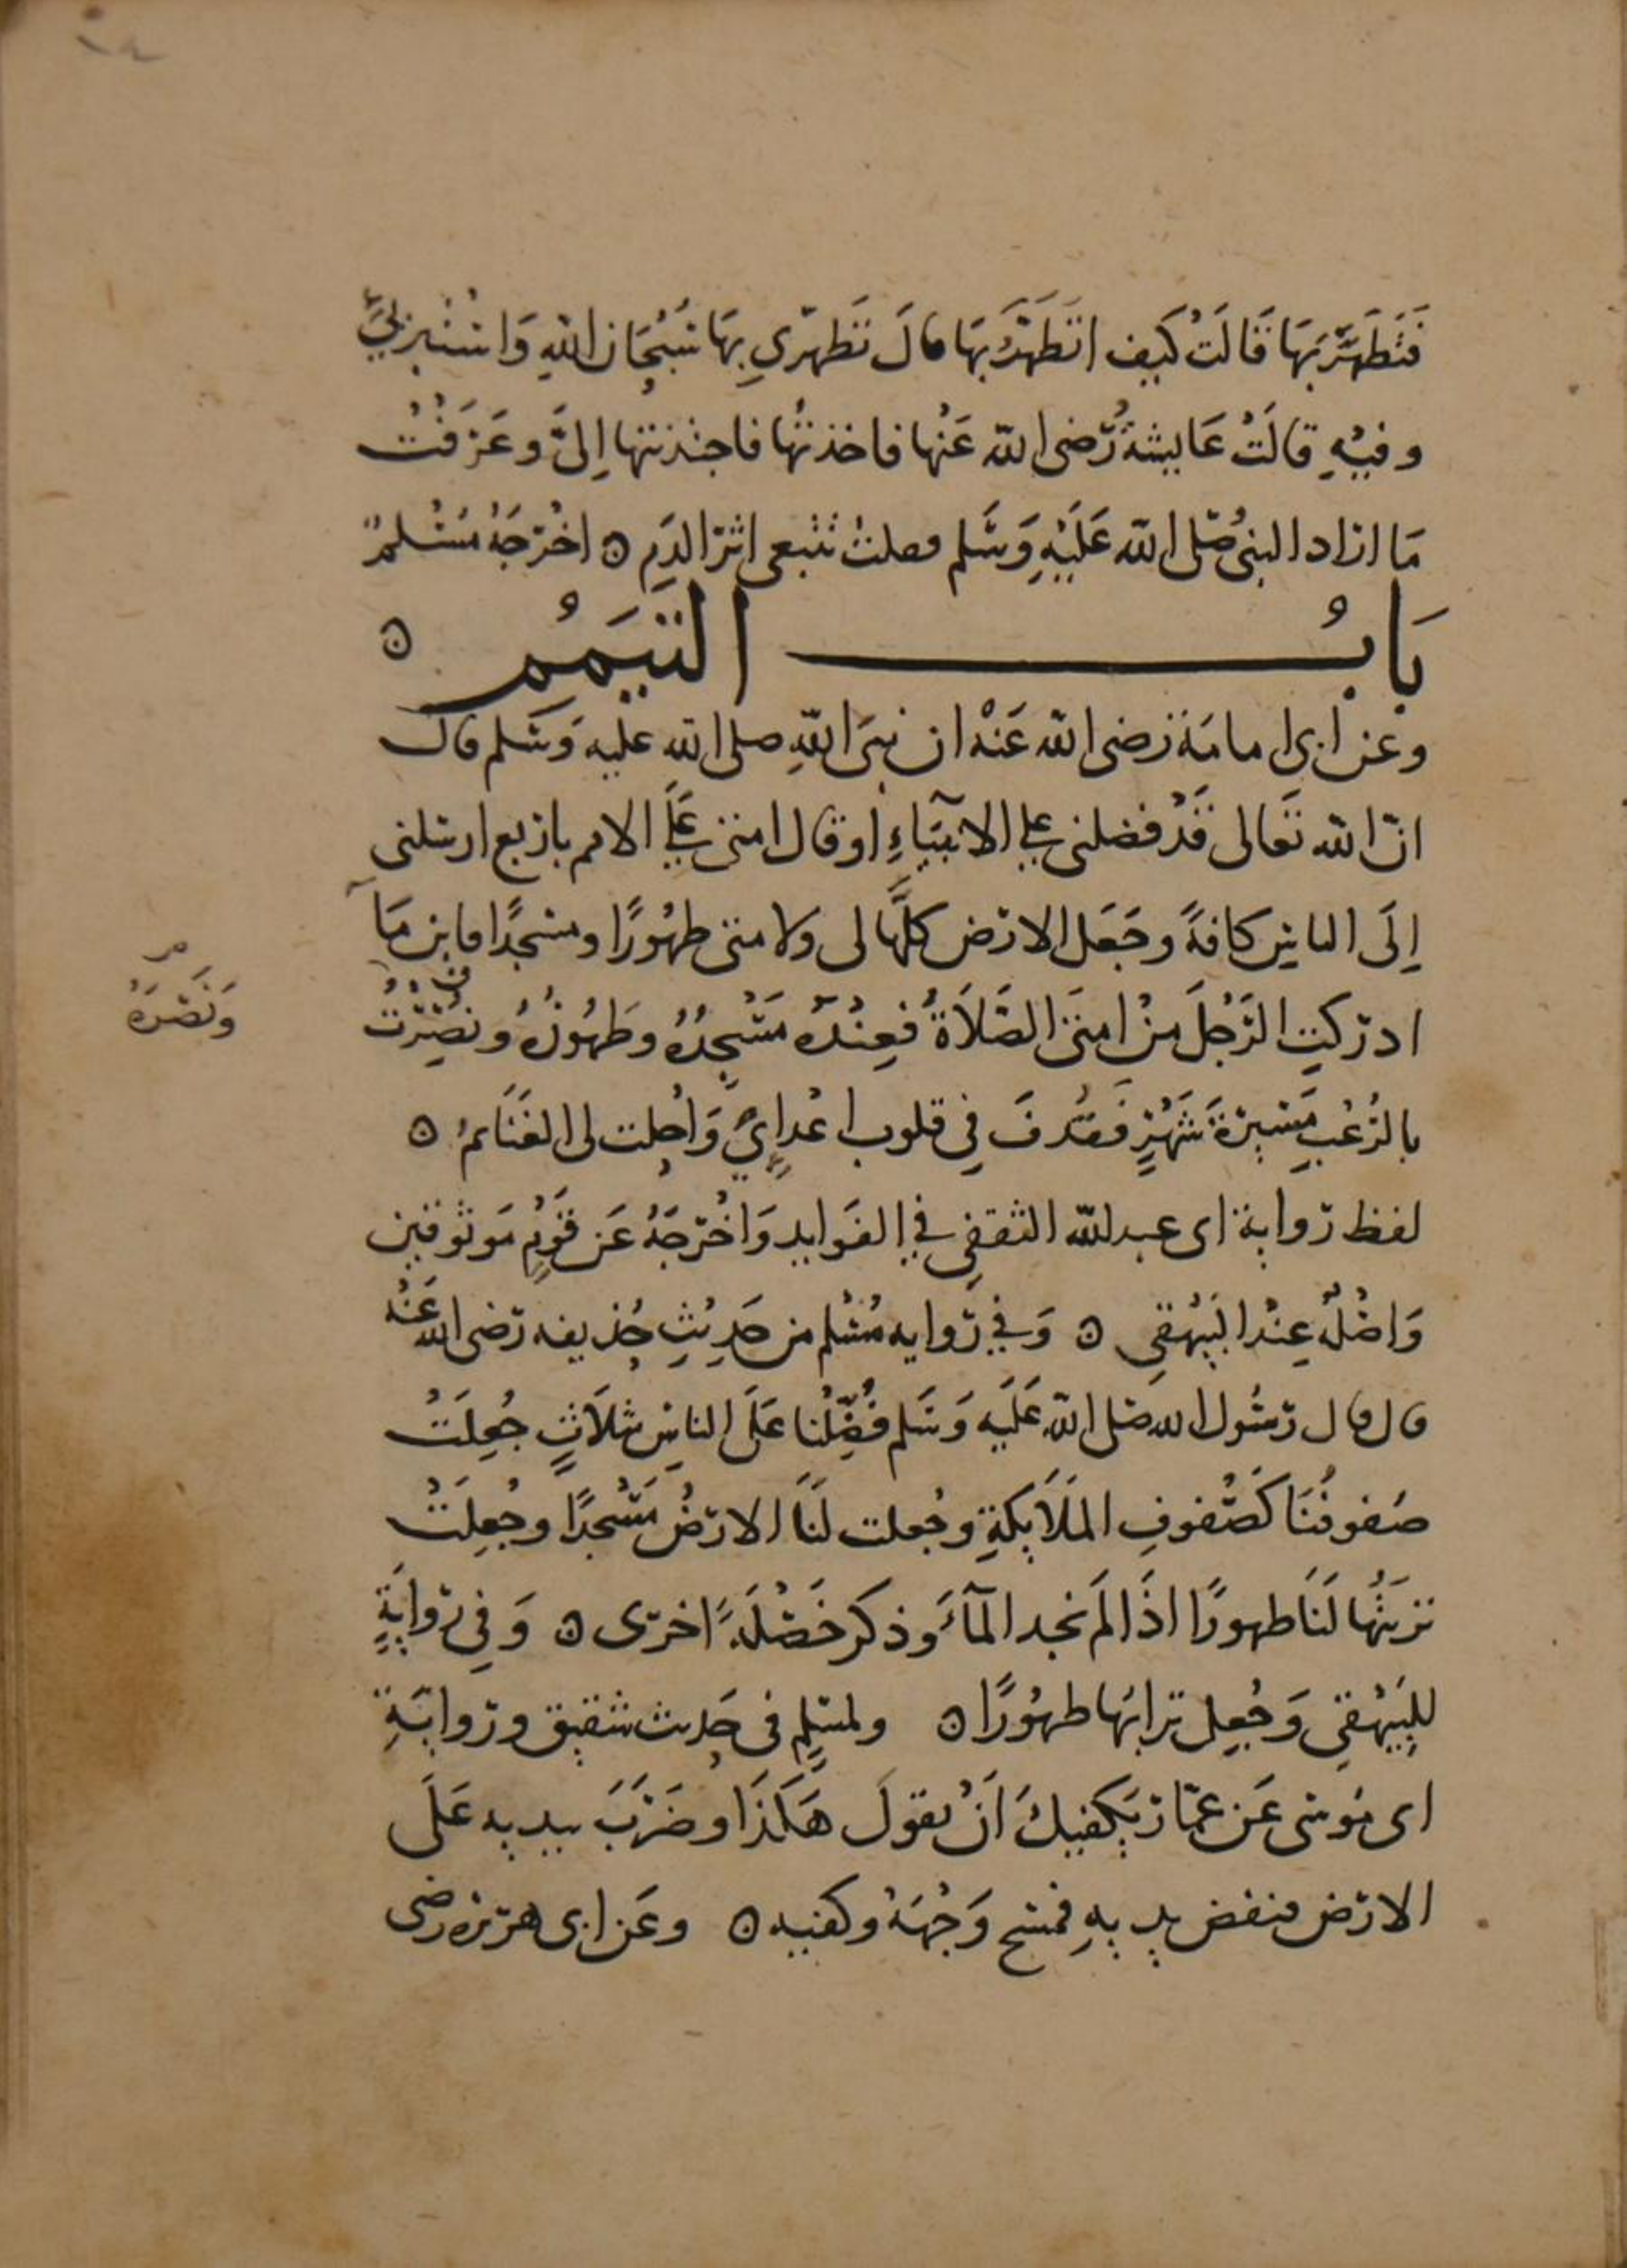 فَتَطَهَّرَ بِهَا قَالَتْ كَيف اتَطَهَّرُ بِهَا قالَ تَطَهَّرِي بِهَا سُبْحَان اللهِ وَاسْتَتِرِي
وفيْهِ قالَتْ عَايشةُ رَضى الله عَنْها فاخذتُها فاجتذبتها إلىَّ وعَرَفْتُ
مَا اراد النبىُ صَلى الله عَلَيْهِ وَسَلم فقلتُ تتبعى اثرَ الدَمِ ٥ اخْرَجَهُ مُسْلمٌ
بَابُ التيَممُ ٥
وعن ابى امامَة رَضى الله عَنْهُ ان نبىَ اللهِ صلى الله عليه وَسَلم قال
انّ الله تعَالى قَدْ فضلنى على الانبيَاءِ او قال امتى عَلى الامم باربع ارسلنى
إلَى الناسِ كافةً وجَعَل الارْض كلَّهَا لى ولامتى طهُورًا ومسْجدًا فاين مَا
ادركتِ الرَجُلَ مِنْ امتىَ الصَّلَاةُ فعِنْدَهُ مَسْجِدُهُ وطَهُورُهُ ونصِرْتُ
وَنَصْرَهُ
بالرُعْبِ مَسِيرَةَ شَهْرٍ فَقُذفَ فِي قلوب اعْدايِيَّ وَاُحِلت لى الغَنَايمُ ٥
لفظ رواية ابى عبدالله الثقفِى فِي الفوَايد وَاخْرَجَهُ عَن قَوْمٍ مَوثوقين
وَاصْلُهُ عِنْدَ البَيْهَقِى ٥ وَفِي رواية مُسْلم من حَدِيْثِ حُذيفه رَضى الله عَنْهُ
قال قال رسُول الله صَلى الله عَلَيه وَسَلم فُضِّلْنا عَلَى الناسِ بثلَاثٍ جُعِلَتْ
صُفوفُنَا كَصُفوفِ المَلَايكةِ وجُعلت لنَا الارْضُ مَسْجدًا وجُعِلَتْ
تربَتُها لَنَا طهورًا اذَا لَم نجد المَآءَ وذكر خَصْلَةً اخرَى ٥ وَفِي رِوايَةٍ
للبَيْهَقِي وَجُعِل ترابَها طهُورًا ٥ ولمسْلِم فى حَديث شقيق ورَوايَةِ
ابى مُوسَى عَن عمّار يَكفيكَ اَنْ تقولَ هَكَذَا وضَرَبَ بيديه عَلَى
الارْض فنفض يديهِ فمسَح وَجْهَهُ وكفيه ٥ وعَن ابى هرَيره رضى